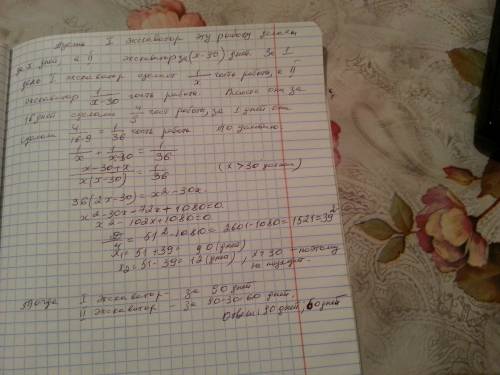 Пусть I экскаватор эту работу делает
за x дней, а II экскаватор за (x-30) дней. За 1
день I экскаватор сделает 1/x часть работы, а II
экскаватор 1/(x-30) часть работы. они за
16 дней сделали 4/ часть работы, за 1 дней они
сделали 4/(16·9) = 1/36 часть работы. По
1/x + 1/(x-30) = 1/36
(x-30+x)/(x(x-30)) = 1/36 (x>30 дней)
36(2x-30) = x²-30x
x²-30x-72x+1080=0
x²-102x+1080=0
D/4 = 51²-1080 = 2601-1080 = 1521 = 39²
x₁ = 51+39 = 90 (дней)
x₂ = 51-39 = 12 (дней), x>30 - поэтому
не подходит.
Тогда I экскаватор - за 90 дней
II экскаватор - за 90-30=60 дней,
Ответ: 90 дней, 60 дней